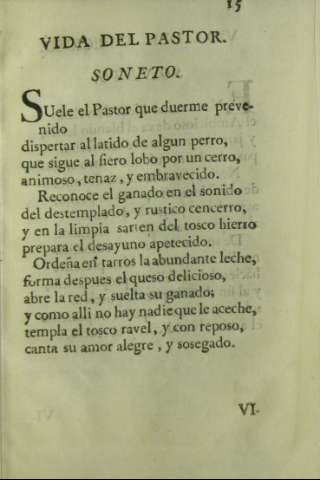 15
VIDA DEL PASTOR.
SONETO.
SUele el Pastor que duerme preve-
nido
dispertar al latido de algun perro,
que sigue al fiero lobo por un cerro,
animoso, tenaz, y embravecido.
Reconoce el ganado en el sonido
del destemplado, y rustico cencerro,
y en la limpia sarten del tosco hierro
prepara el desayuno apetecido.
Ordeña en tarros la abundante leche,
forma despues el queso delicioso,
abre la red, y suelta su ganado;
y como alli no hay nadie que le aceche,
templa el tosco ravel, y con reposo,
canta su amor alegre, y sosegado.
VI.